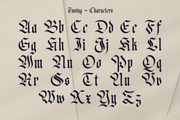 Swing ~ Characters
Aa Bb Cc Dd Ee Ff
Gg Hh Ii Jj Kk Ll
Mm Nn Oo Pp Qq
Rr Ss Tt Uu Vv
Ww Xx Yy Zz